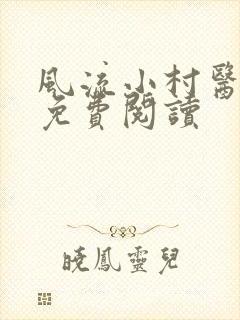 風流小村醫
免費閱讀
曉鳳靈兒